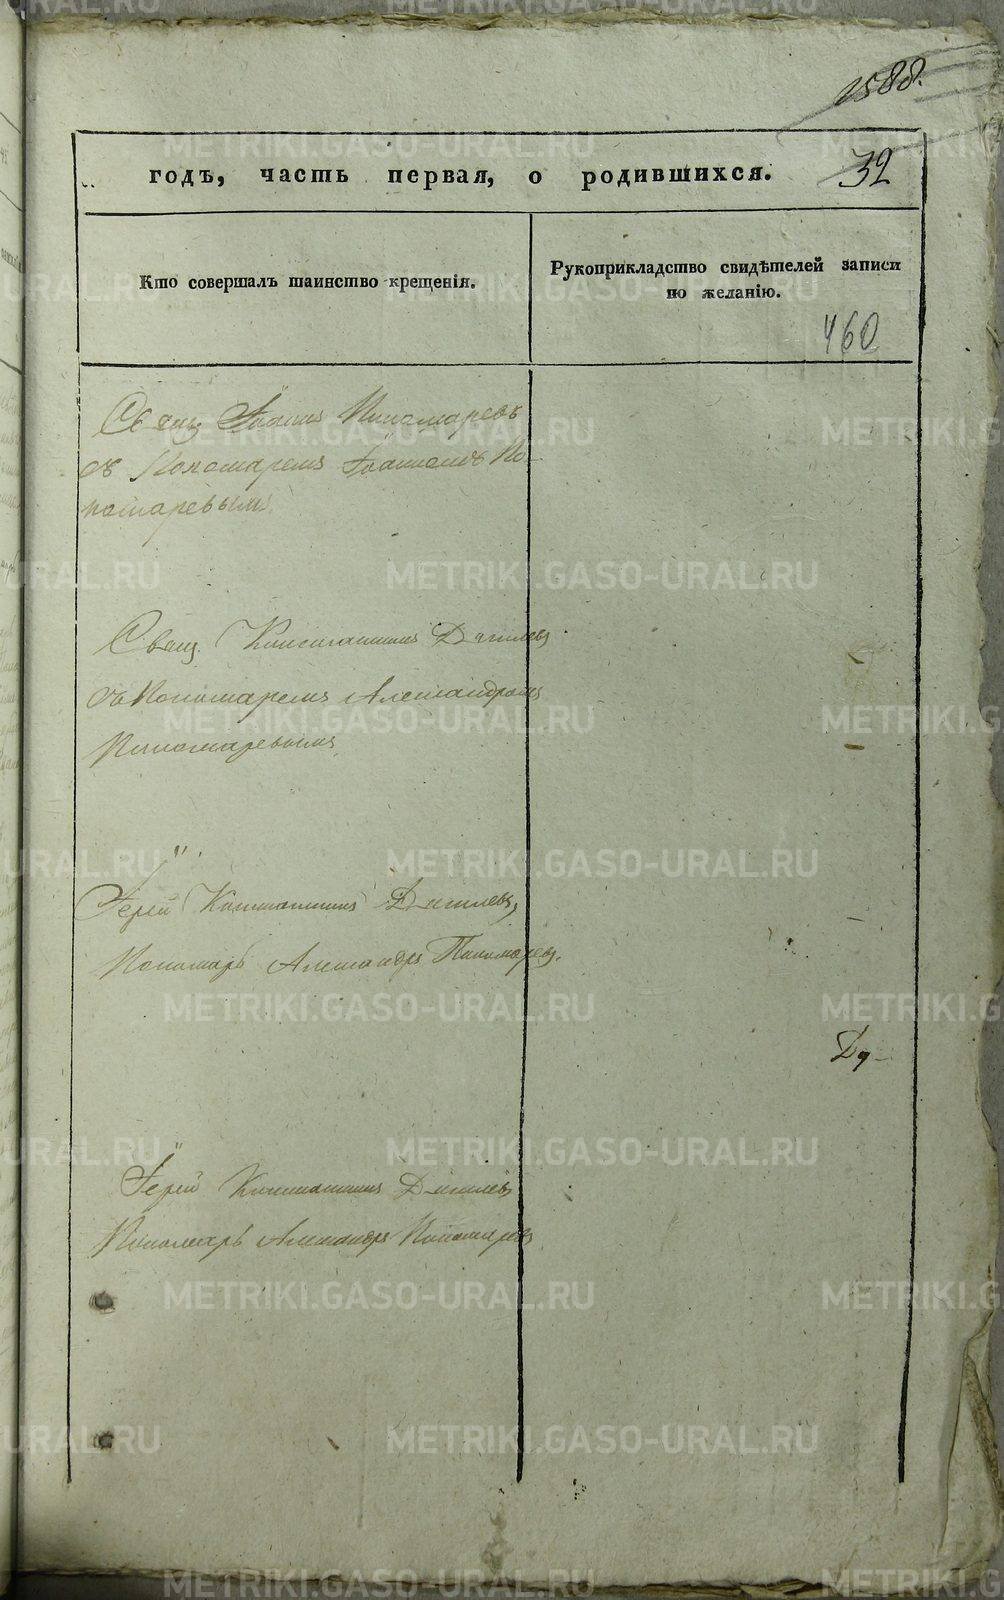 1588.
годъ, часть первая, о родившихся.
32
Кто совершалъ таинство крещенія.
Рукоприкладство свидѣтелей записи
по желанію.
460
Свящ. Іоаннъ Пономаревъ
съ Пономаремъ Іоанномъ По-
номаревымъ.
Свящ. Константинъ Дягилевъ
съ Пономаремъ Александромъ
Пономаревымъ.
Іерей Константинъ Дягилевъ,
Пономарь Александръ Пономаревъ.
Іерей Константинъ Дягилевъ
Пономарь Александръ Пономаревъ
METRIKI.GASO-URAL.RU